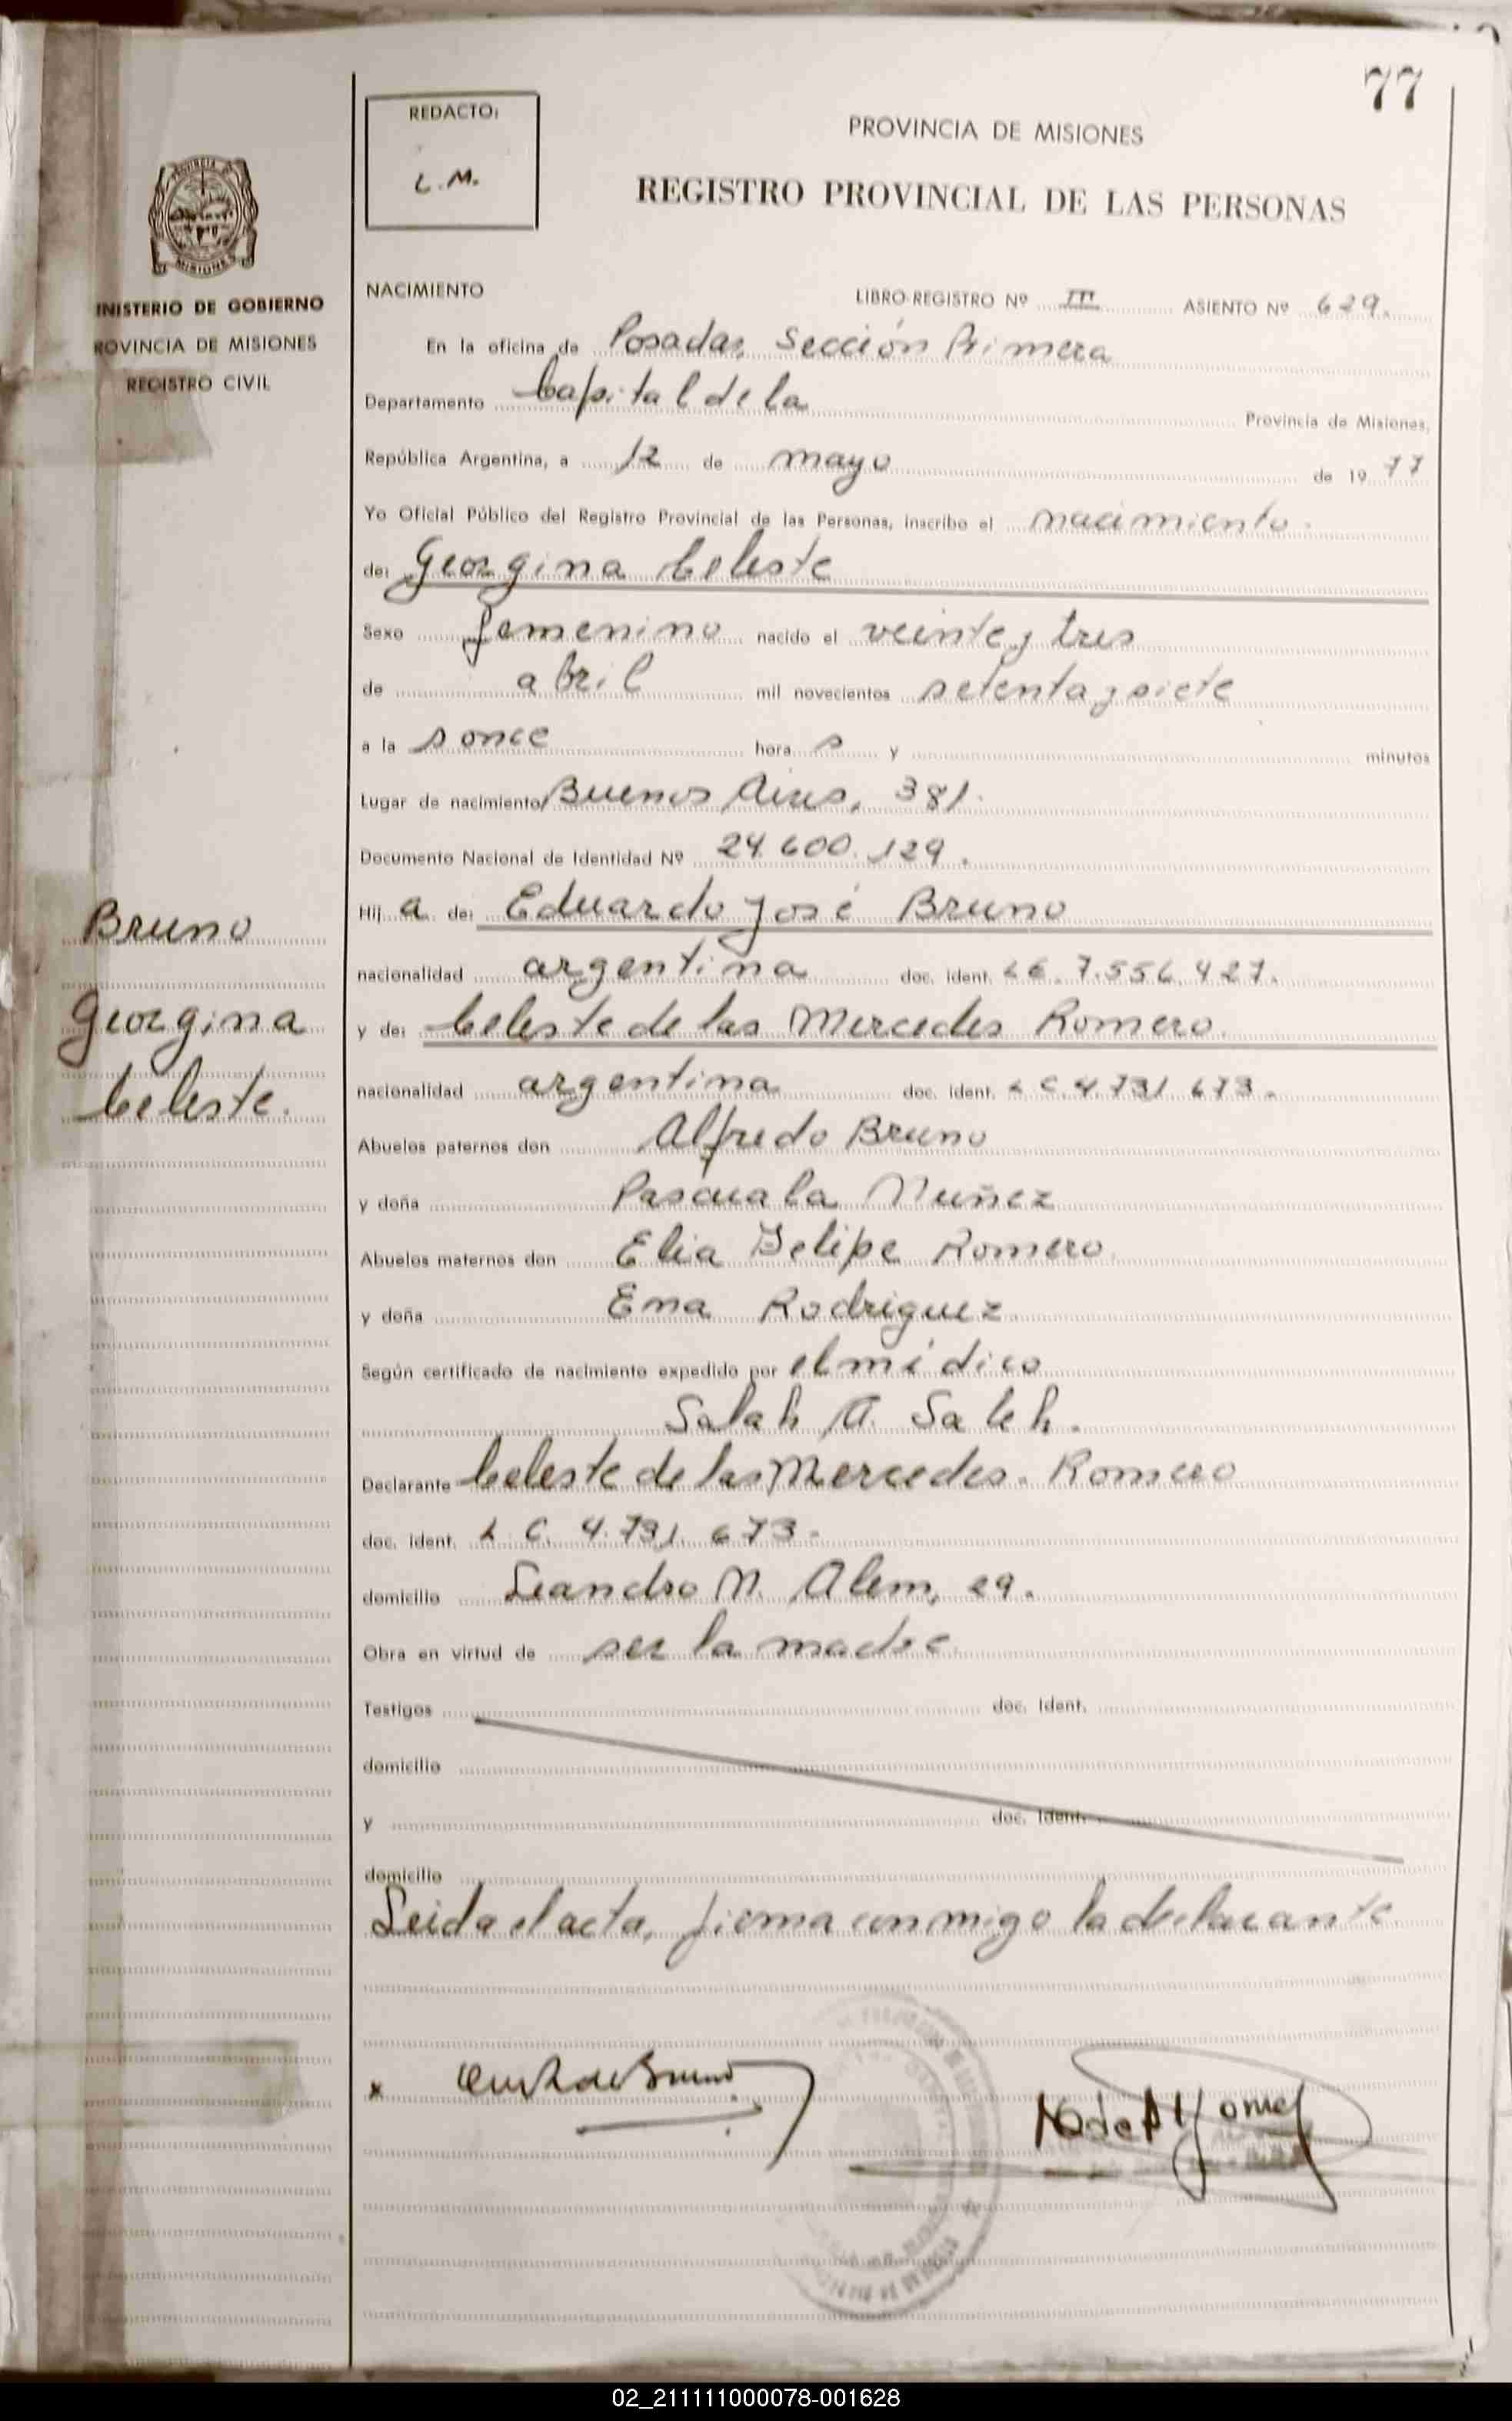 77
REDACTO:
L.M.
PROVINCIA DE MISIONES
REGISTRO PROVINCIAL DE LAS PERSONAS
PROVINCIA
MISIONES
INISTERIO DE GOBIERNO
ROVINCIA DE MISIONES
REGISTRO CIVIL
NACIMIENTO LIBRO-REGISTRO Nº III ASIENTO Nº 629.
En la oficina de Posadas, Sección Primera
Departamento Capital de la Provincia de Misiones,
República Argentina, a 12 de mayo de 19 77
Yo Oficial Público del Registro Provincial de las Personas, inscribo el nacimiento.
de: Georgina Celeste
Sexo femenino nacido el veinte y tres
de abril mil novecientos setenta y siete
a la s once hora s y minutos
Lugar de nacimiento Buenos Aires, 381.
Documento Nacional de Identidad Nº 24.600.129.
Hij a de: Eduardo José Bruno
nacionalidad argentina doc. ident. LE. 7.556.427.
y de: Celeste de las Mercedes Romero.
nacionalidad argentina doc. ident. L C. 4.731.673.
Abuelos paternos don Alfredo Bruno
y doña Pascuala Nuñez
Abuelos maternos don Elia Felipe Romero.
y doña Ema Rodriguez
Según certificado de nacimiento expedido por el médico
Salah A. Saleh.
Declarante Celeste de las Mercedes. Romero
doc. ident. L C. 4.731.673.
domicilio Leandro N. Alem, 29.
Obra en virtud de ser la madre.
Testigos doc. Ident.
domicilio
y doc. Ident.
domicilio
Leida el acta, firma conmigo la declarante
Bruno
Georgina
Celeste.
x
02_211111000078-001628